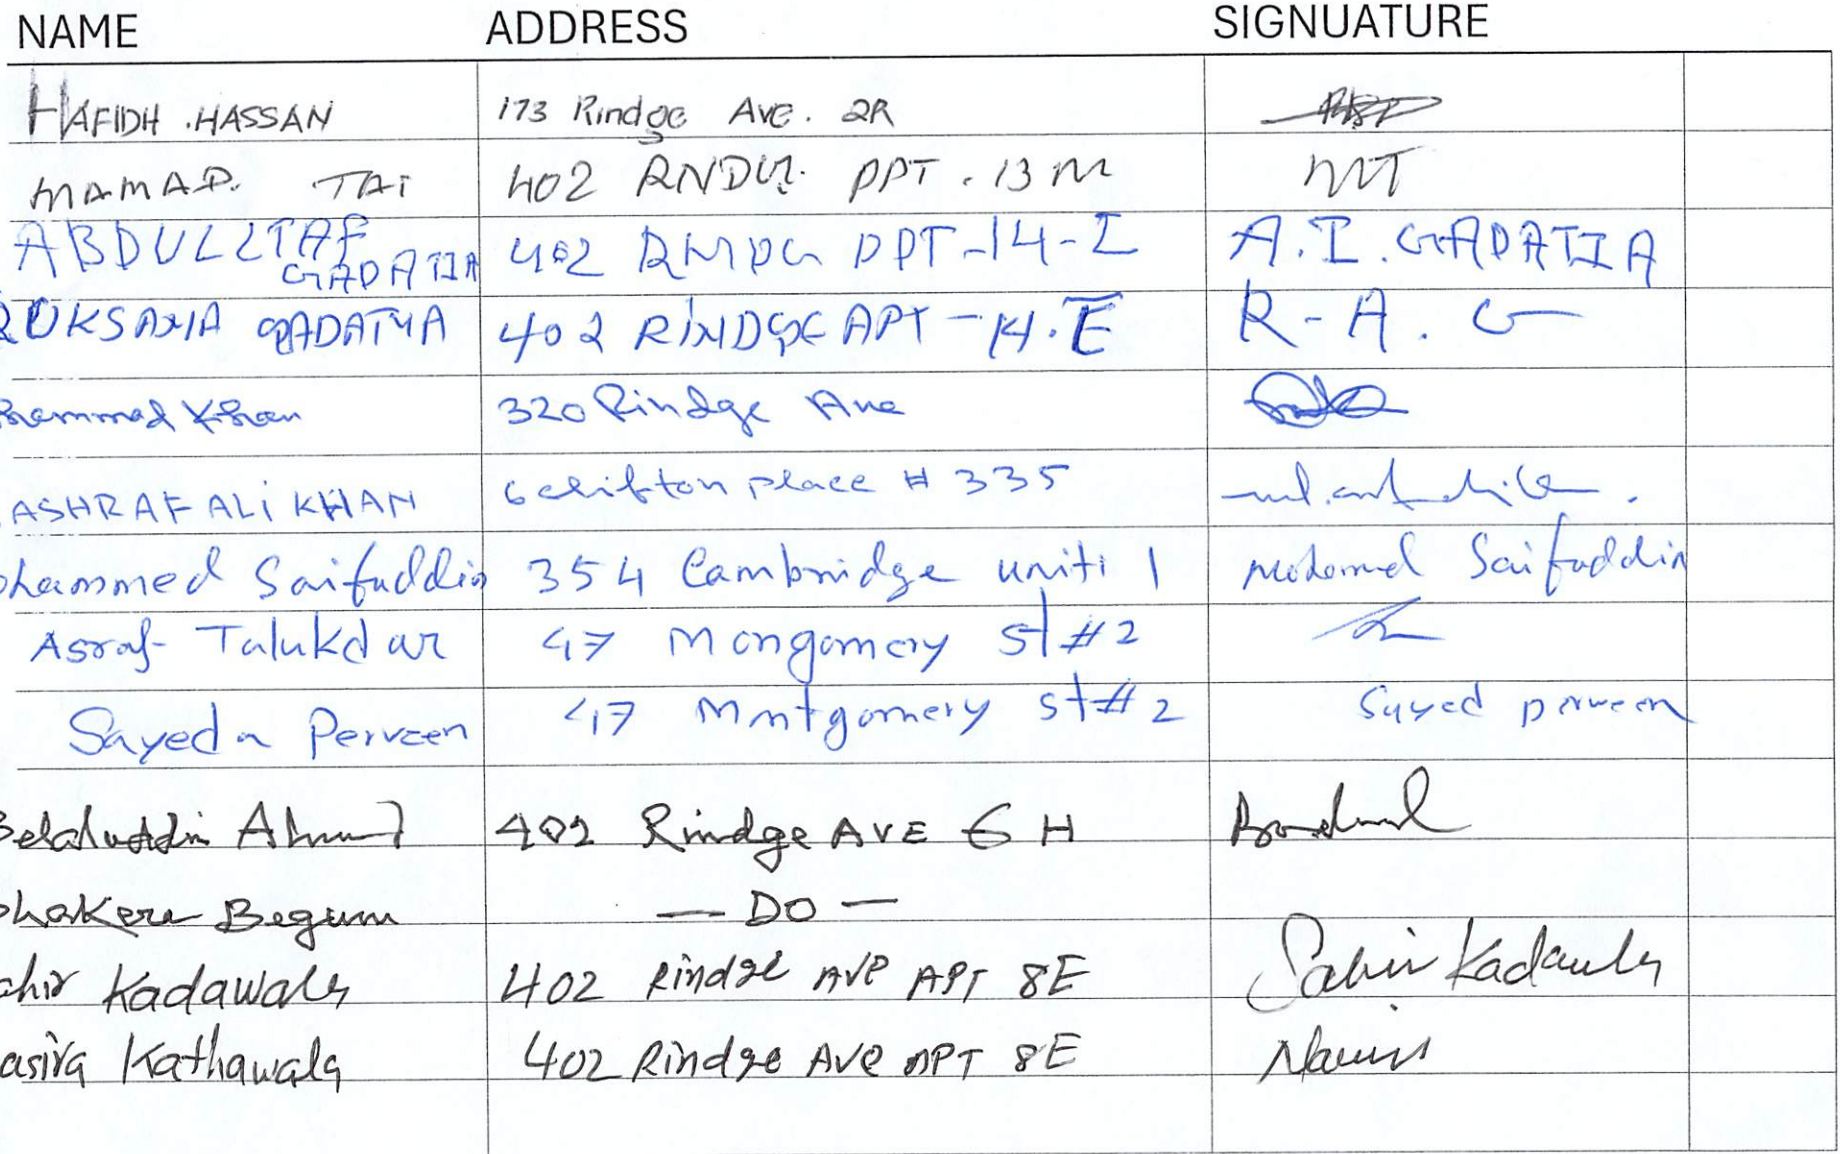 NAME ADDRESS SIGNUATURE
HAFIDH .HASSAN 173 Rindge Ave. 2R
MAMAD. TAI 402 PPT. 13 M MT
ABDULLTAF GADATIA 402 PPT-14-I A.I.GADATIA
ROKSANA GADATYA 402 RINDGE APT-14.E R-A.G
Khan 320 Rindge Ave
ASHRAF ALI KHAN 6 clifton place # 335
ohammed Saifuddin 354 Cambridge uniti 1 Saifuddin
Asraf Talukdar 47 Mongomery St #2
Sayeda Perveen 47 Montgomery St # 2 Sayed perveen
Belaluddin 402 Rindge AVE 6 H
hakera Begum — DO —
ahir Kadawala 402 Rindge AVE APT 8E Kadawala
asira Kathawala 402 Rindge AVE APT 8E